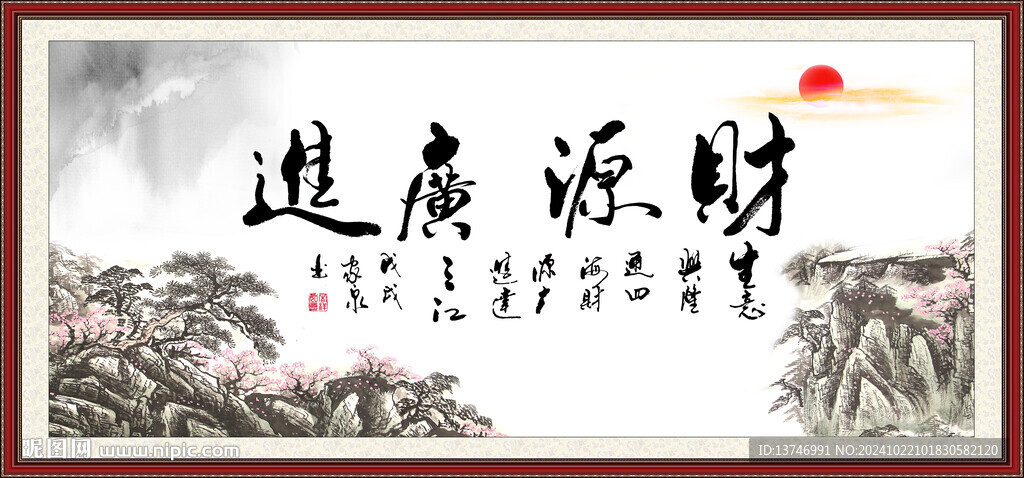 財源廣進
生意
興隆
通四
海財
源
達
三江
戊戌
家泉
书
昵图网 www.nipic.com
ID:13746991 NO:20241022101830582120